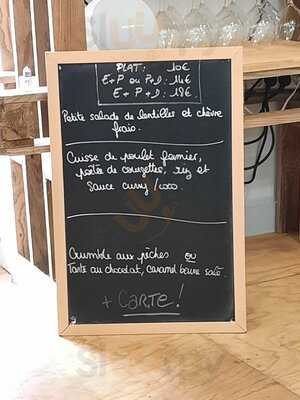 PLAT : 10€
E + P ou P + D : 14€
E + P + D : 18€
Petite salade de lentilles et chèvre
frais.
Cuisse de poulet fermier,
poêlée de courgettes, riz et
sauce curry / coco
Crumble aux pêches ou
Tarte au chocolat, caramel beurre salé.
+ CARTE !